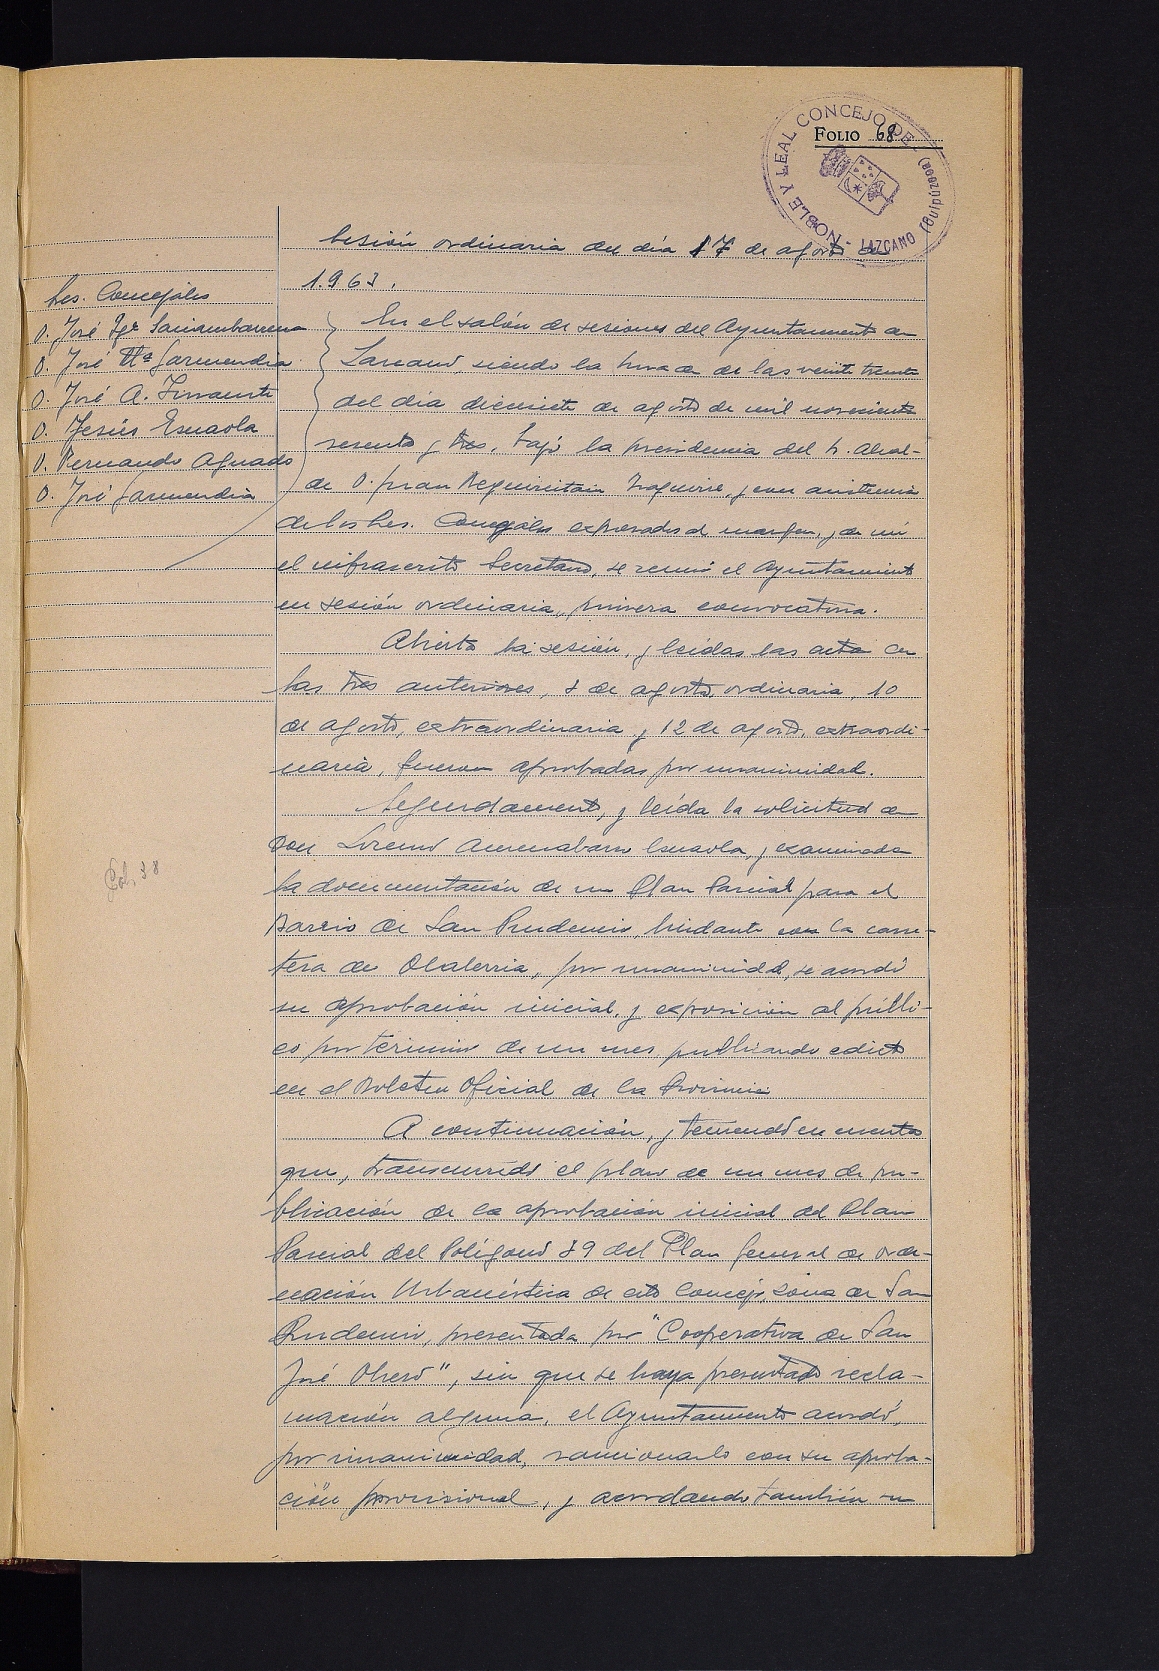 FOLIO 68
NOBLE Y LEAL CONCEJO DE - LAZCANO (Guipúzcoa)
Sesión ordinaria del día 17 de agosto de
1.963.
Sres. Concejales
D. José Igº Sarriambarrena
D. José Mª Garmendia
D. José A. Insausti
D. Jesús Esnaola
D. Fernando Aguado
D. José Garmendia
En el salón de sesiones del Ayuntamiento de
Lazcano, siendo la hora de las veinte treinta
del día diecisiete de agosto de mil novecientos
sesenta y tres, bajo la presidencia del Sr. Alcal-
de D. Juan Reguiristain Iraguirre, y con asistencia
de los Sres. Concejales expresados al margen, y de mí
el infrascrito Secretario, se reunió el Ayuntamiento
en sesión ordinaria, primera convocatoria.
Abierta la sesión, y leídas las actas de
las tres anteriores, 3 de agosto, ordinaria, 10
de agosto, extraordinaria y 12 de agosto, extraordi-
naria, fueron aprobadas por unanimidad.
Segundamente, y leída la solicitud de
Don Lorenzo Aurrecabarn Esnaola, y examinada
la documentación de un Plan Parcial para el
Barrio de San Prudencio, lindante con la carre-
tera de Olaberria, por unanimidad, se acordó
su aprobación inicial, y exposición al públi-
co por término de un mes publicando edicto
en el Boletín Oficial de la Provincia
Fol. 38
A continuación, y teniendo en cuenta
que, transcurrido el plazo de un mes de pu-
blicación de la aprobación inicial del Plan
Parcial del Polígono 39 del Plan General de Orde-
nación Urbanística de este Concejo, zona de San
Prudencio, presentada por "Cooperativa de San
José Obrero", sin que se haya presentado recla-
mación alguna, el Ayuntamiento acordó,
por unanimidad, sancionarlo con su aproba-
ción provisional, y acordando también su